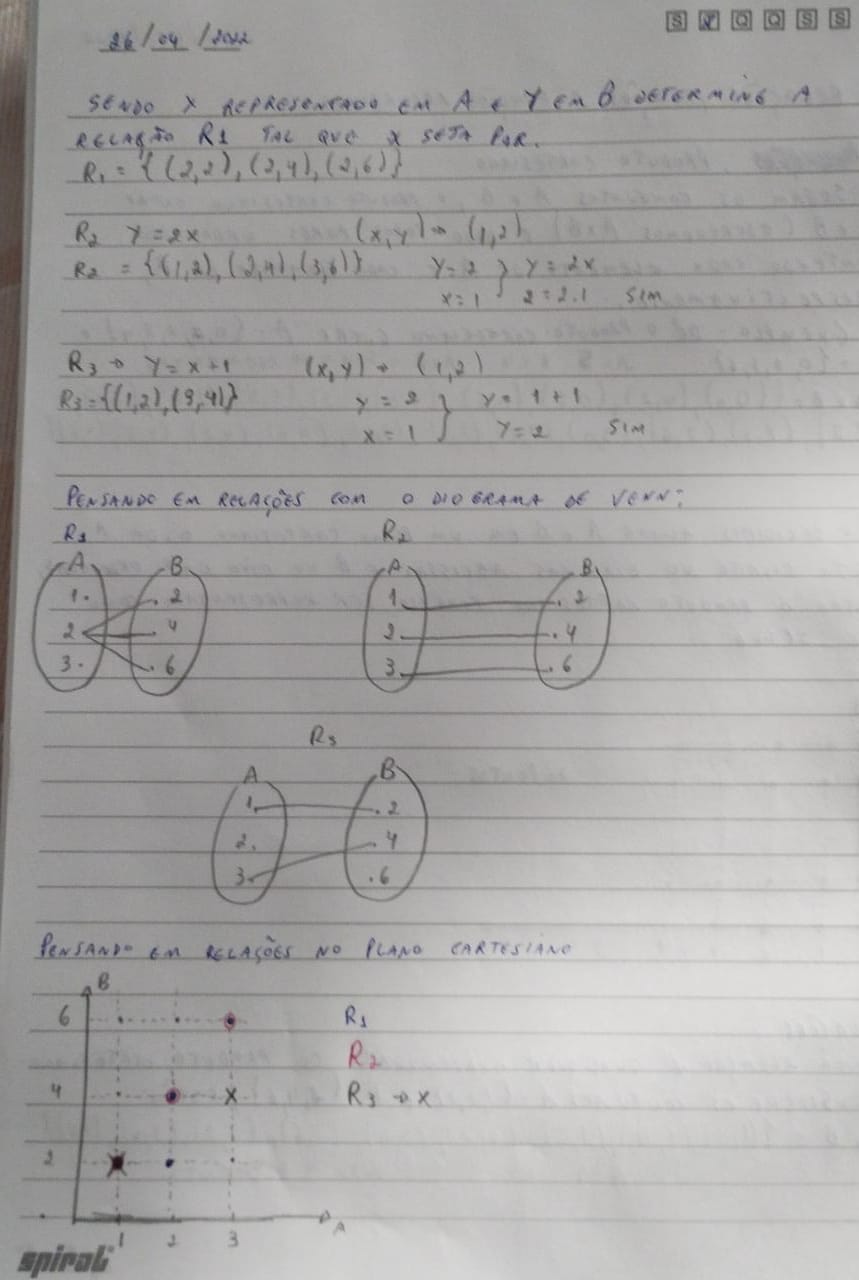 S T Q Q S S
26/04/2022
SENDO X REPRESENTADO EM A E Y EM B DETERMINE A
RELAÇÃO R1 TAL QUE X SEJA PAR.
R1 = {(2,2),(2,4),(2,6)}
R2 Y=2X (X,Y) → (1,2)
R2 = {(1,2),(2,4),(3,6)} Y=2 } Y=2X
X=1 2=2.1 SIM
R3 → Y=X+1 (X,Y) → (1,2)
R3={(1,2),(3,4)} Y=2 } Y=1+1
X=1 Y=2 SIM
PENSANDO EM RELAÇÕES COM O DIOGRAMA DE VENN:
R1 R2
A B A B
1 2 1 2
2 4 2 4
3 6 3 6
R3
A B
1 2
2 4
3 6
PENSANDO EM RELAÇÕES NO PLANO CARTESIANO
B
6 R1
R2
4 X R3 → X
2
A
1 2 3
spiral